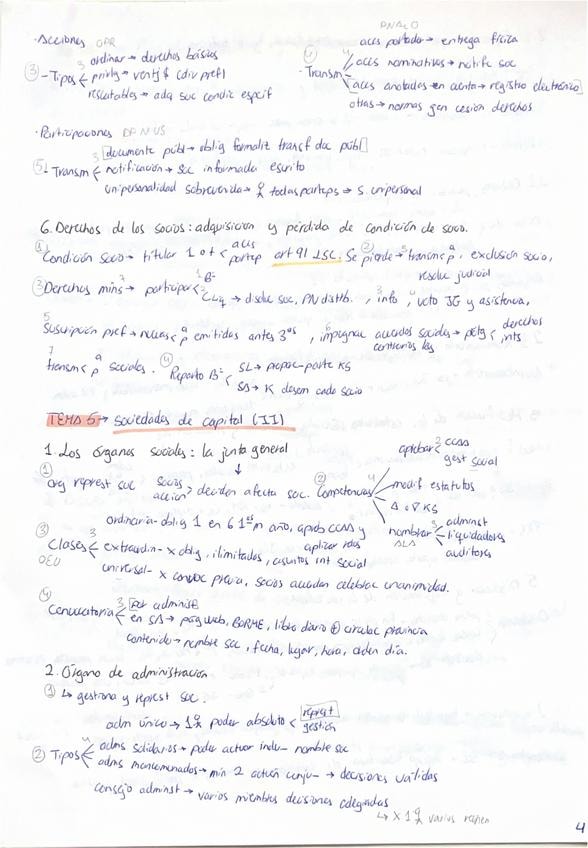 PNALO
· Acciones OPR
③ - Tipos
3
ordinar → derechos básicos
privileg → ventj f cdiv prefl
rescatables → adq suc condic especif
④ Transm
4
accs portador → entrega física
accs nominativas → notific soc
[accs anotadas en cuenta → registro electrónico]
otras → normas gen cesión derechos
· Participaciones DPNUS
⑤ - Transm
3
[documento públ → oblig formaliz transf doc públ]
notificación → soc informada escrito
unipersonalidad sobrevenida → todas parteps → s. unipersonal
6. Derechos de los socios: adquisición y pérdida de condición de socio.
① Condición socio → titular 1 o + < accs partep art 91 LSC. ② Se pierde → transm, exclusión socio,
resoluc judicial
③ Derechos míns → participar < B= Cliq → disoluc soc, PN distrib., 3 info, 4 voto JG y asistencia,
5 suscripción pref → nuevas emitidas antes 3os, 6 impugnac acuerdos sociales → perjg < derechos ints
contrarios ley
7 transm sociales. ④ Reparto B= < SL → propor-parte KS
SA → K desem cada socio
TEMA 5 → sociedades de capital (II)
1. Los órganos sociales: la junta general
① org represt soc socios accion > deciden afecta soc.
② Competencias
4
aprobar 2 CCAA gest social
modif estatutos
Δ o ∇ KS
nombrar 3 administ liquidadores auditores
ALA
③ Clases
OEU
3
ordinaria - oblig 1 en 6 1os m año, aprob CCAA y aplicar rdos
extraordin - x oblig, ilimitadas, asuntos int social
universal - x convoc previa, socios acuerdan celebrac unanimidad.
④ Convocatoria
3
por administ
en SA → pág web, BORME, libro diario ⊕ circulac provincia
contenido → nombre soc, fecha, lugar, hora, orden día.
2. Órgano de administración
① ↳ gestiona y represt soc.
② Tipos
4
adm único → 1 poder absoluto < represt gestión
adms solidarios → poder actuar indiv - nombre soc
adms mancomunados → mín 2 actúen conju - → decisiones válidas
consejo administ → varios miembros decisiones colegiadas
↳ x 1 varios
4